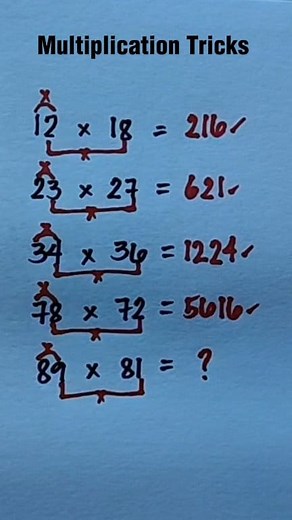 Multiplication Tricks
12 × 18 = 216 ✓
23 × 27 = 621 ✓
34 × 36 = 1224 ✓
78 × 72 = 5616 ✓
89 × 81 = ?